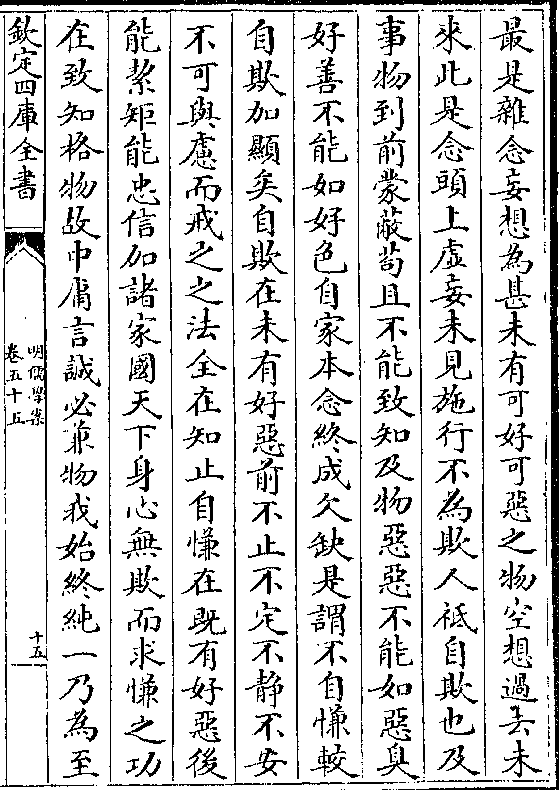 最是雜念妄想為甚未有可好可惡之物空想過去未
來此是念頭上虛妄未見施行不為欺人祗自欺也及
事物到前蒙蔽苟且不能致知及物惡惡不能如惡臭
好善不能如好色自家本念終成欠缺是謂不自慊較
自欺加顯矣自欺在未有好惡前不止不定不静不安
不可與慮而戒之之法全在知止自慊在既有好惡後
能絜矩能忠信加諸家國天下身心無欺而求慊之功
在致知格物故中庸言誠必兼物我始終純一乃為至
欽定四庫全書
明儒學案
卷五十五
十五